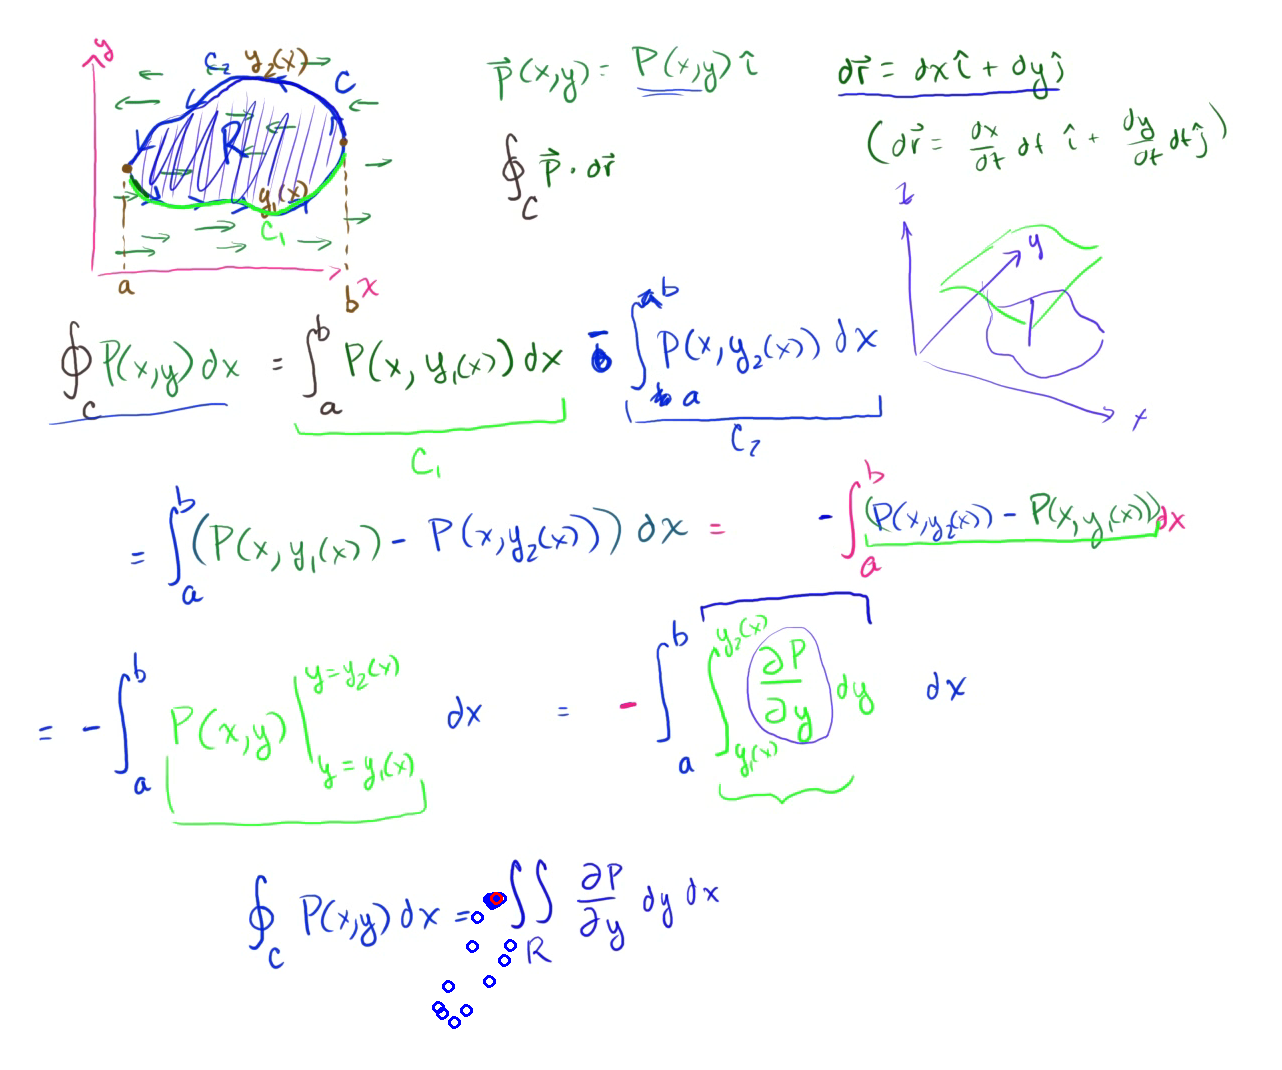 y
C₂ y₂(x)
C
R
y₁(x)
C₁
a
b x
P⃗(x,y) = P(x,y) î
dr⃗ = dx î + dy ĵ
(dr⃗ = dx/dt dt î + dy/dt dt ĵ)
∮_C P⃗ · dr⃗
z
y
x
∮_C P(x,y) dx = ∫_a^b P(x, y₁(x)) dx - ∫_a^b P(x, y₂(x)) dx
C₁
C₂
= ∫_a^b (P(x, y₁(x)) - P(x, y₂(x))) dx = - ∫_a^b (P(x, y₂(x)) - P(x, y₁(x))) dx
= - ∫_a^b P(x,y) |_{y=y₁(x)}^{y=y₂(x)} dx = - ∫_a^b ∫_{y₁(x)}^{y₂(x)} ∂P/∂y dy dx
∮_C P(x,y) dx = ∬_R ∂P/∂y dy dx